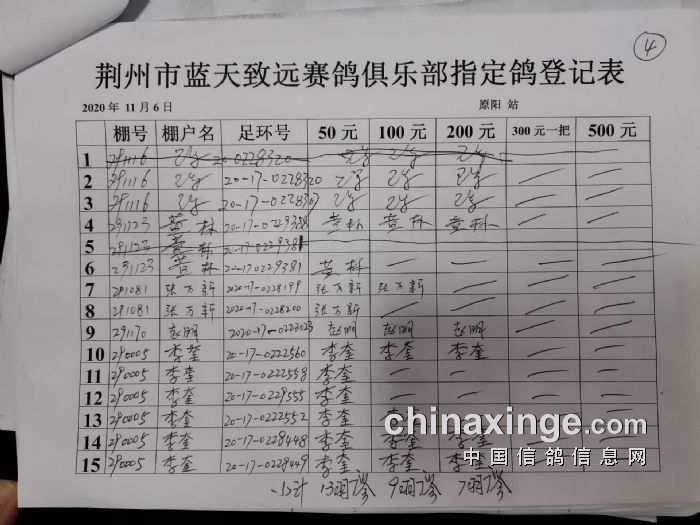 4
荆州市蓝天致远赛鸽俱乐部指定鸽登记表
2020年 11月6日 原阳 站
棚号 棚户名 足环号 50元 100元 200元 300元一把 500元
1 291116 20-0228320
2 291116 20-17-0228320
3 291116 20-17-0228307
4 291123 黄林 20-17-0229388 黄林 黄林 黄林
5 291123 黄林 20-17-0229381
6 291123 黄林 20-17-0229381 黄林 — — — —
7 291081 张万新 2020-17-0228199 张万新 张万新 — — —
8 291081 张万新 2020-17-0228200 张万新 — — — —
9 291170 赵明 2020-17-0223023 赵明 赵明 赵明 — —
10 290005 李奎 20-17-0222560 李奎 李奎 李奎 — —
11 290005 李奎 20-17-0222558 李奎 — — — —
12 290005 李奎 20-17-0229555 李奎 — — — —
13 290005 李奎 20-17-0222552 李奎
14 290005 李奎 20-17-0228448 李奎 李奎 李奎
15 290005 李奎 20-17-0228449 李奎 李奎 李奎 — —
小计 13羽 9羽 7羽
chinaxinge.com
中国信鸽信息网